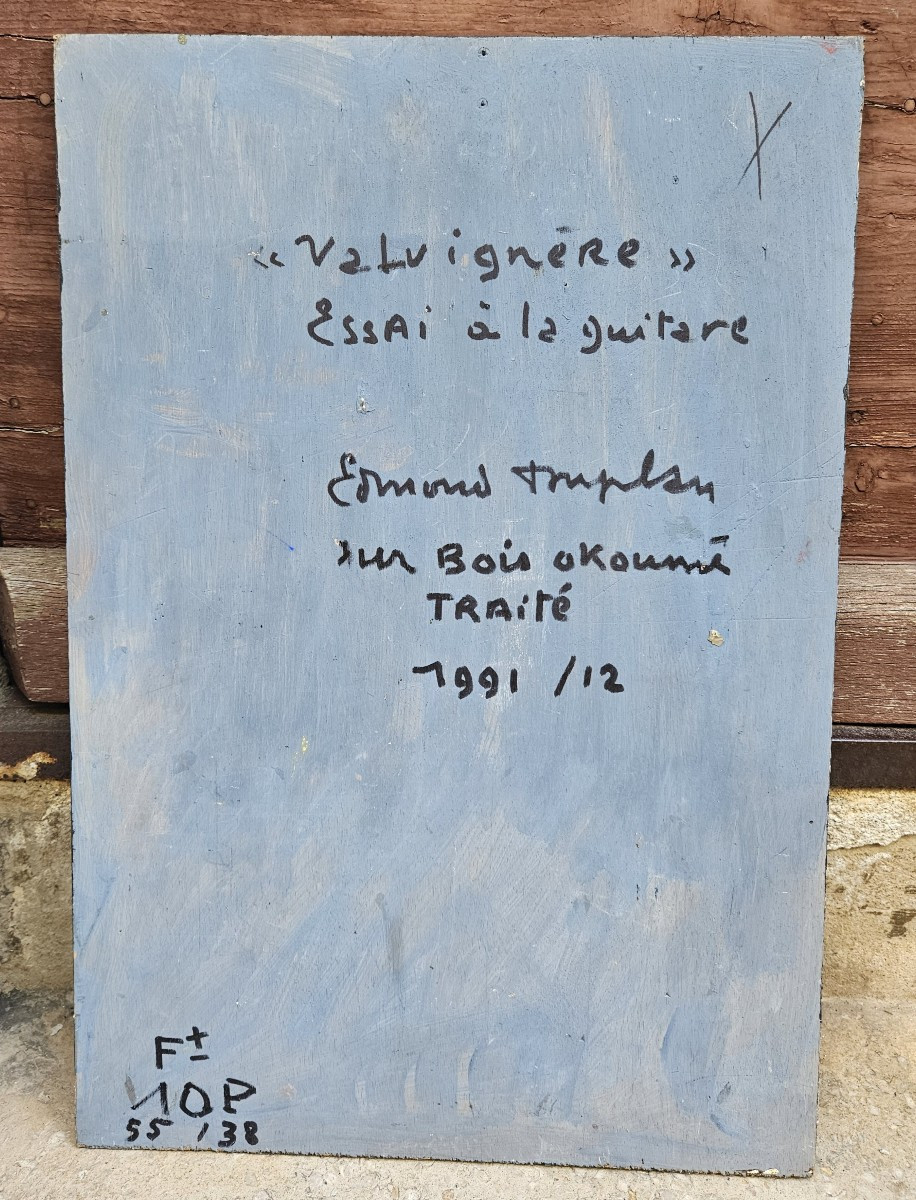 X
« Valvignère »
Essai à la guitare
Edmond
sur Bois okoumé
TRAité
1991 /12
F±
10P
55 /38